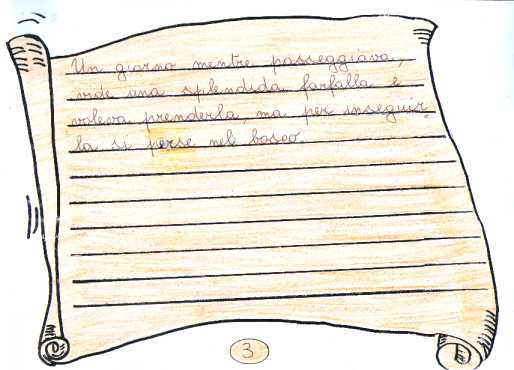 Un giorno mentre passeggiava,
vide una splendida farfalla e
voleva prenderla, ma per inseguir_
la si perse nel bosco.
3